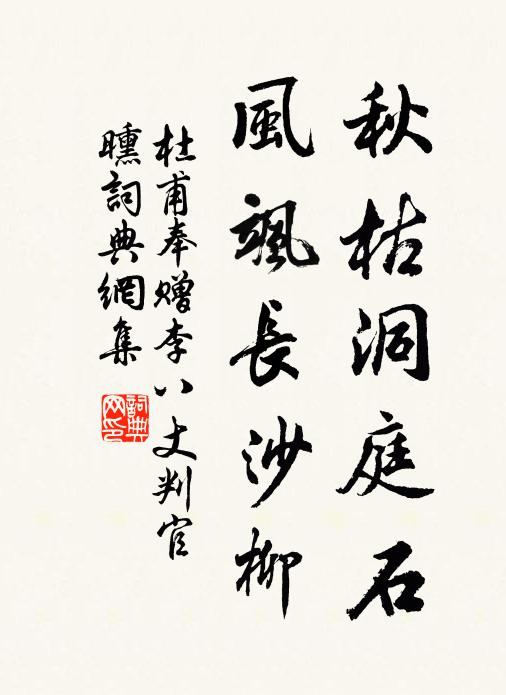 秋枯洞庭石
風颯長沙柳
杜甫奉贈李八丈判官
曛詞典網集
詞典网印